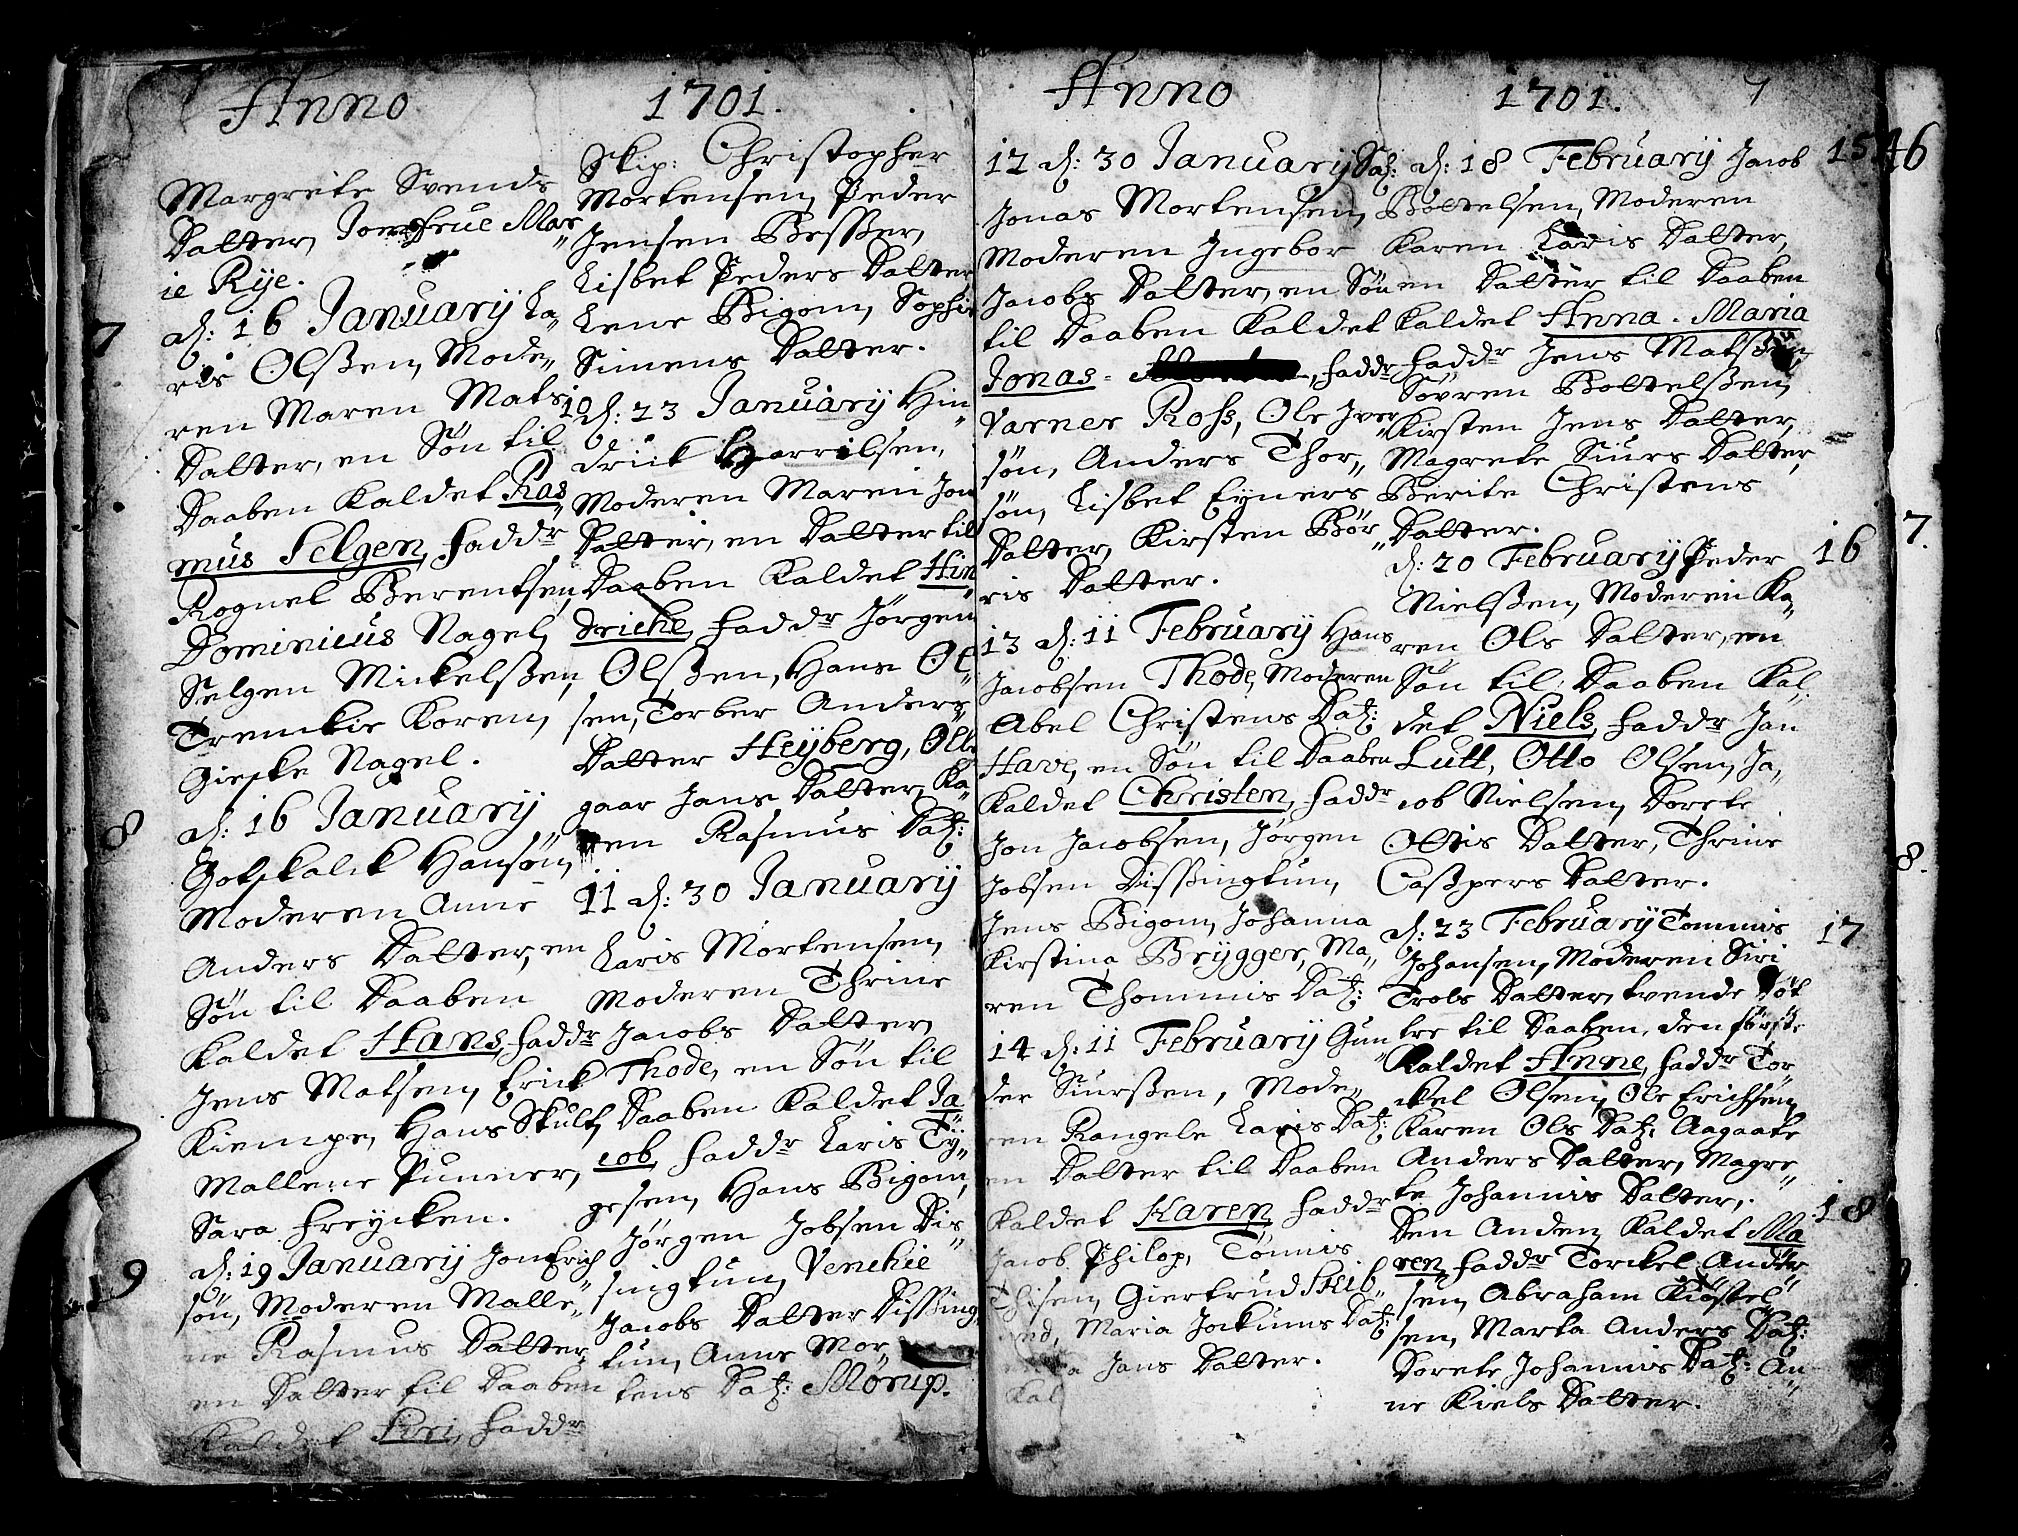 Anno 1701.
Margrete Svends
Datter, Jomfrue Mar„
ie Rije.
7 d: 16 Januarij La„
ris Olsßen, Mode„
ren Maren Mats
Datter, en Søn til
Daaben Kaldet Ras„
mus Selgen, Faddr
Rognel Berentsen,
Dominicus Nagel,
Selgen Mickelsßen,
Tremkie Koren,
Gieske Nagel.
8 d: 16 Januarij
Gotskalck Hansøn,
Moderen Anne
Anders Datter, en
Søn til Daaben
Kaldet Hans, Faddr
Jens Matsen, Erick
Kiempe, Hans Skult,
Mallene Punner,
Sara Freycken.
9 d: 19 Januarij Jon Erich„
søn, Moderen Malle„
ne Rasmus Datter,
en Datter til Daaben
Kaldet Siri, Faddr
Skip: Christopher
Mortensen, Peder
Jensen Besßer,
Lisbet Peders Datter,
Lene Bigom, Sophie
Simens Datter.
10 d: 23 Januarij Hin„
drick Harrilsen,
Moderen Maren Jon
Datter, en Datter til
Daaben Kaldet Hin„
driche, Faddr Jørgen
Olsßen, Hans Ol„
sen, Torber Anders
Datter Heijberg, Olle„
gaar Jans Datter, Ka„
ren Rasmus Dat:
11 d: 30 Januarij
Laris Mortensen,
Moderen Thrine
Jacobs Datter
Thode, en Søn til
Daaben Kaldet Ja„
cob, Faddr Laris Tÿ„
gesen, Hans Bigom,
Jørgen Jobsen Dis„
singtun, Venchie
Jacobs Datter Dissing„
tun, Anne Mor„
tens Dat: Mørup.
Anno 1701. 7
12 d: 30 Januarij Sal:
Jonas Mortensen,
Moderen Ingebor
Jacobs Datter, en Søn
til Daaben Kaldet
Jonas, Faddr
Varner Ross, Ole Iver„
søn, Anders Thor„
søn, Lisbet Eyners
Datter, Kirsten Bør„
ris Datter.
13 d: 11 Februarij Hans
Jacobsen Thode, Moderen
Abel Christens Dat:
Have, en Søn til Daaben
Kaldet Christen, Faddr
Jon Jacobsen, Jørgen
Jobsen Dissingtun,
Jens Bigom, Johanna
Kirstina Brÿgger, Ma„
ren Thommis Dat:
14 d: 11 Februarij Gun„
der Siursßen, Mode„
ren Rangele Laris Dat:
en Datter til Daaben
Kaldet Karen, Faddr
Jacob Philop, Tønnis
Thisen, Giertrud Stub„
Maria Jockums Dat:
Jans Datter.
Kal
15 d: 18 Februarij Jacob 46
Bottelsen, Moderen
Karen Laris Datter,
en Datter til Daaben
Kaldet Anna Maria
Faddr Jens Matsßen,
Søvren Bottelsßen,
Kirsten Jens Datter,
Magrete Siurs Datter,
Berite Christens
Datter.
16 d: 20 Februarij Peder 7.
Nielsßen, Moderen Ka„
ren Ols Datter, en
Søn til Daaben Kal„
det Niels, Faddr Jan
Lutt, Otto Olsen, Ja„
cob Nielsen, Dorete
Ottis Datter, Thrine
Casßpers Datter. 8.
17 d: 23 Februarij Tommis
Johansen, Moderen Siri
Trols Datter, tvende Døt„
tre til Daaben, den første
Kaldet Anne, Faddr Tor„
ckel Olsen, Ole Erichsen,
Karen Ols Dat: Aagaate
Anders Datter, Magre„
te Johannis Datter,.
18 Den Anden Kaldet Ma„
ren, Faddr Torckel Ander„
sen, Abraham Kiøstel„
sen, Marta Anders Dat:
Dorete Johannis Dat: An„
ne Kiels Datter.